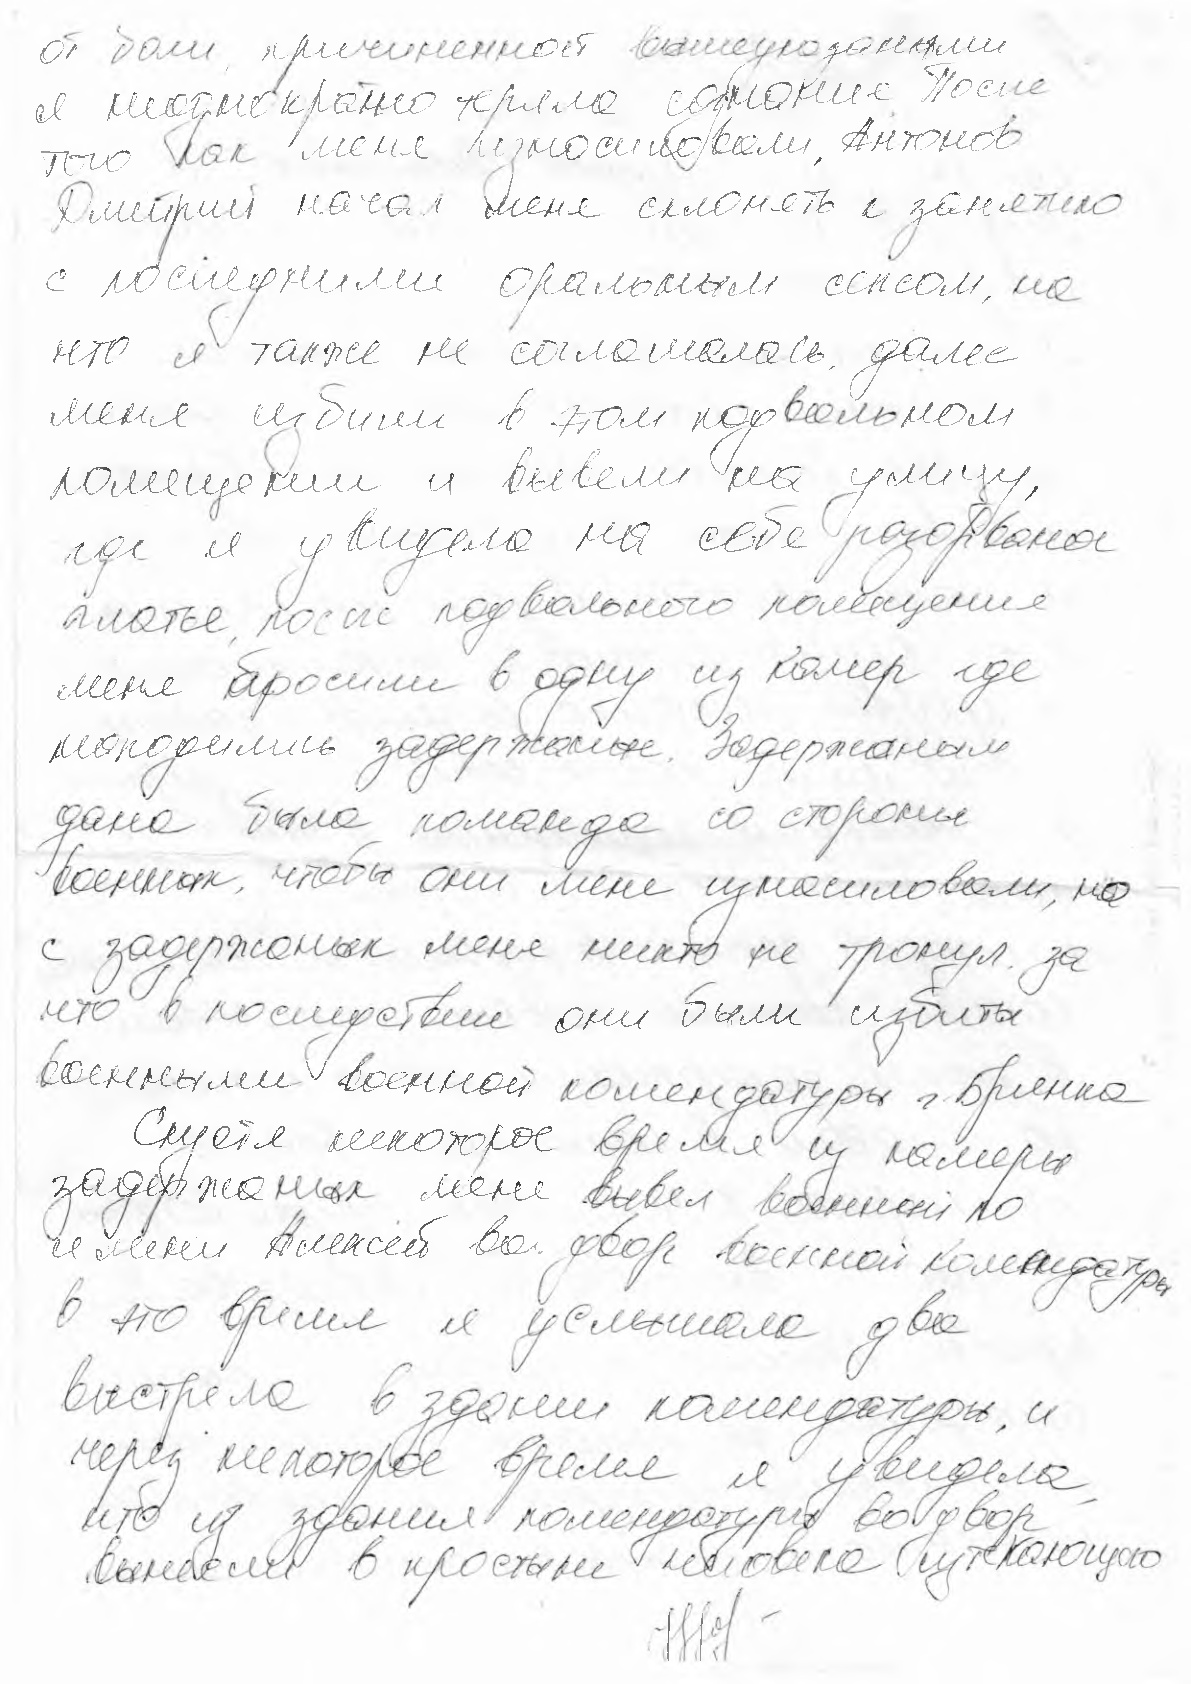 от боли, причиненной вышеуказанными
я неоднократно теряла сознание После
того как меня изнасиловали, Антонов
Дмитрий начал меня склонять к занятию
с последними оральным сексом, на
что я также не соглашалась, далее
меня избили в этом подвальном
помещении и вывели на улицу,
где я увидела на себе разорваное
платье, после подвального помещения
меня бросили в одну из камер где
находились задержаные. Задержаным
дана была команда со стороны
военных, чтобы они меня изнасиловали, но
с задержаных меня никто не тронул. за
что в последствии они были избиты
военными военной комендатуры г. Брянка
Спустя некоторое время из камеры
задержаных меня вывел военный по
имени Алексей во двор военной комендатуры
в это время я услышала два
выстрела в здании комендатуры, и
через некоторое время я увидела,
что из здания комендатуры во двор
вынесли в простыне человека истекающего